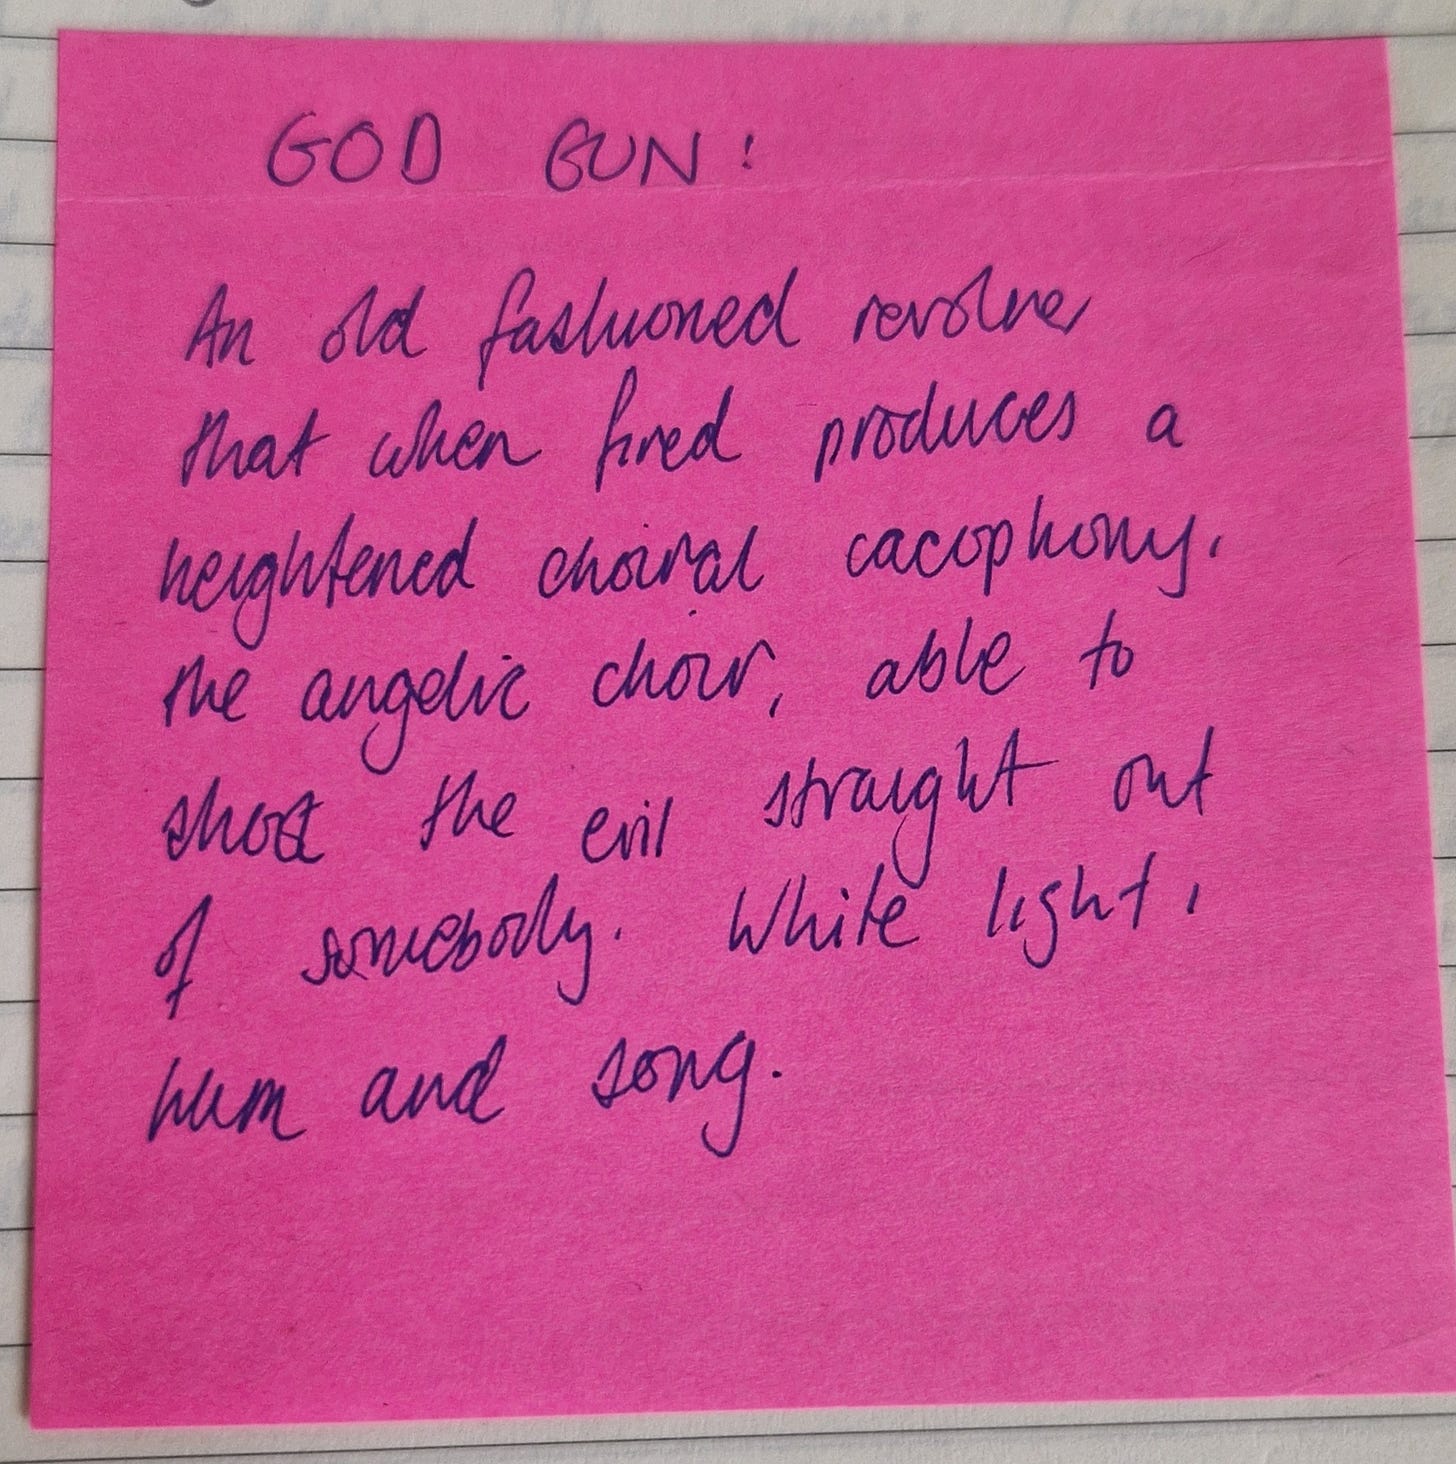 GOD GUN:
An old fashioned revolver
that when fired produces a
heightened choiral cacophony,
the angelic choir, able to
shoot the evil straight out
of somebody. White light,
hum and song.